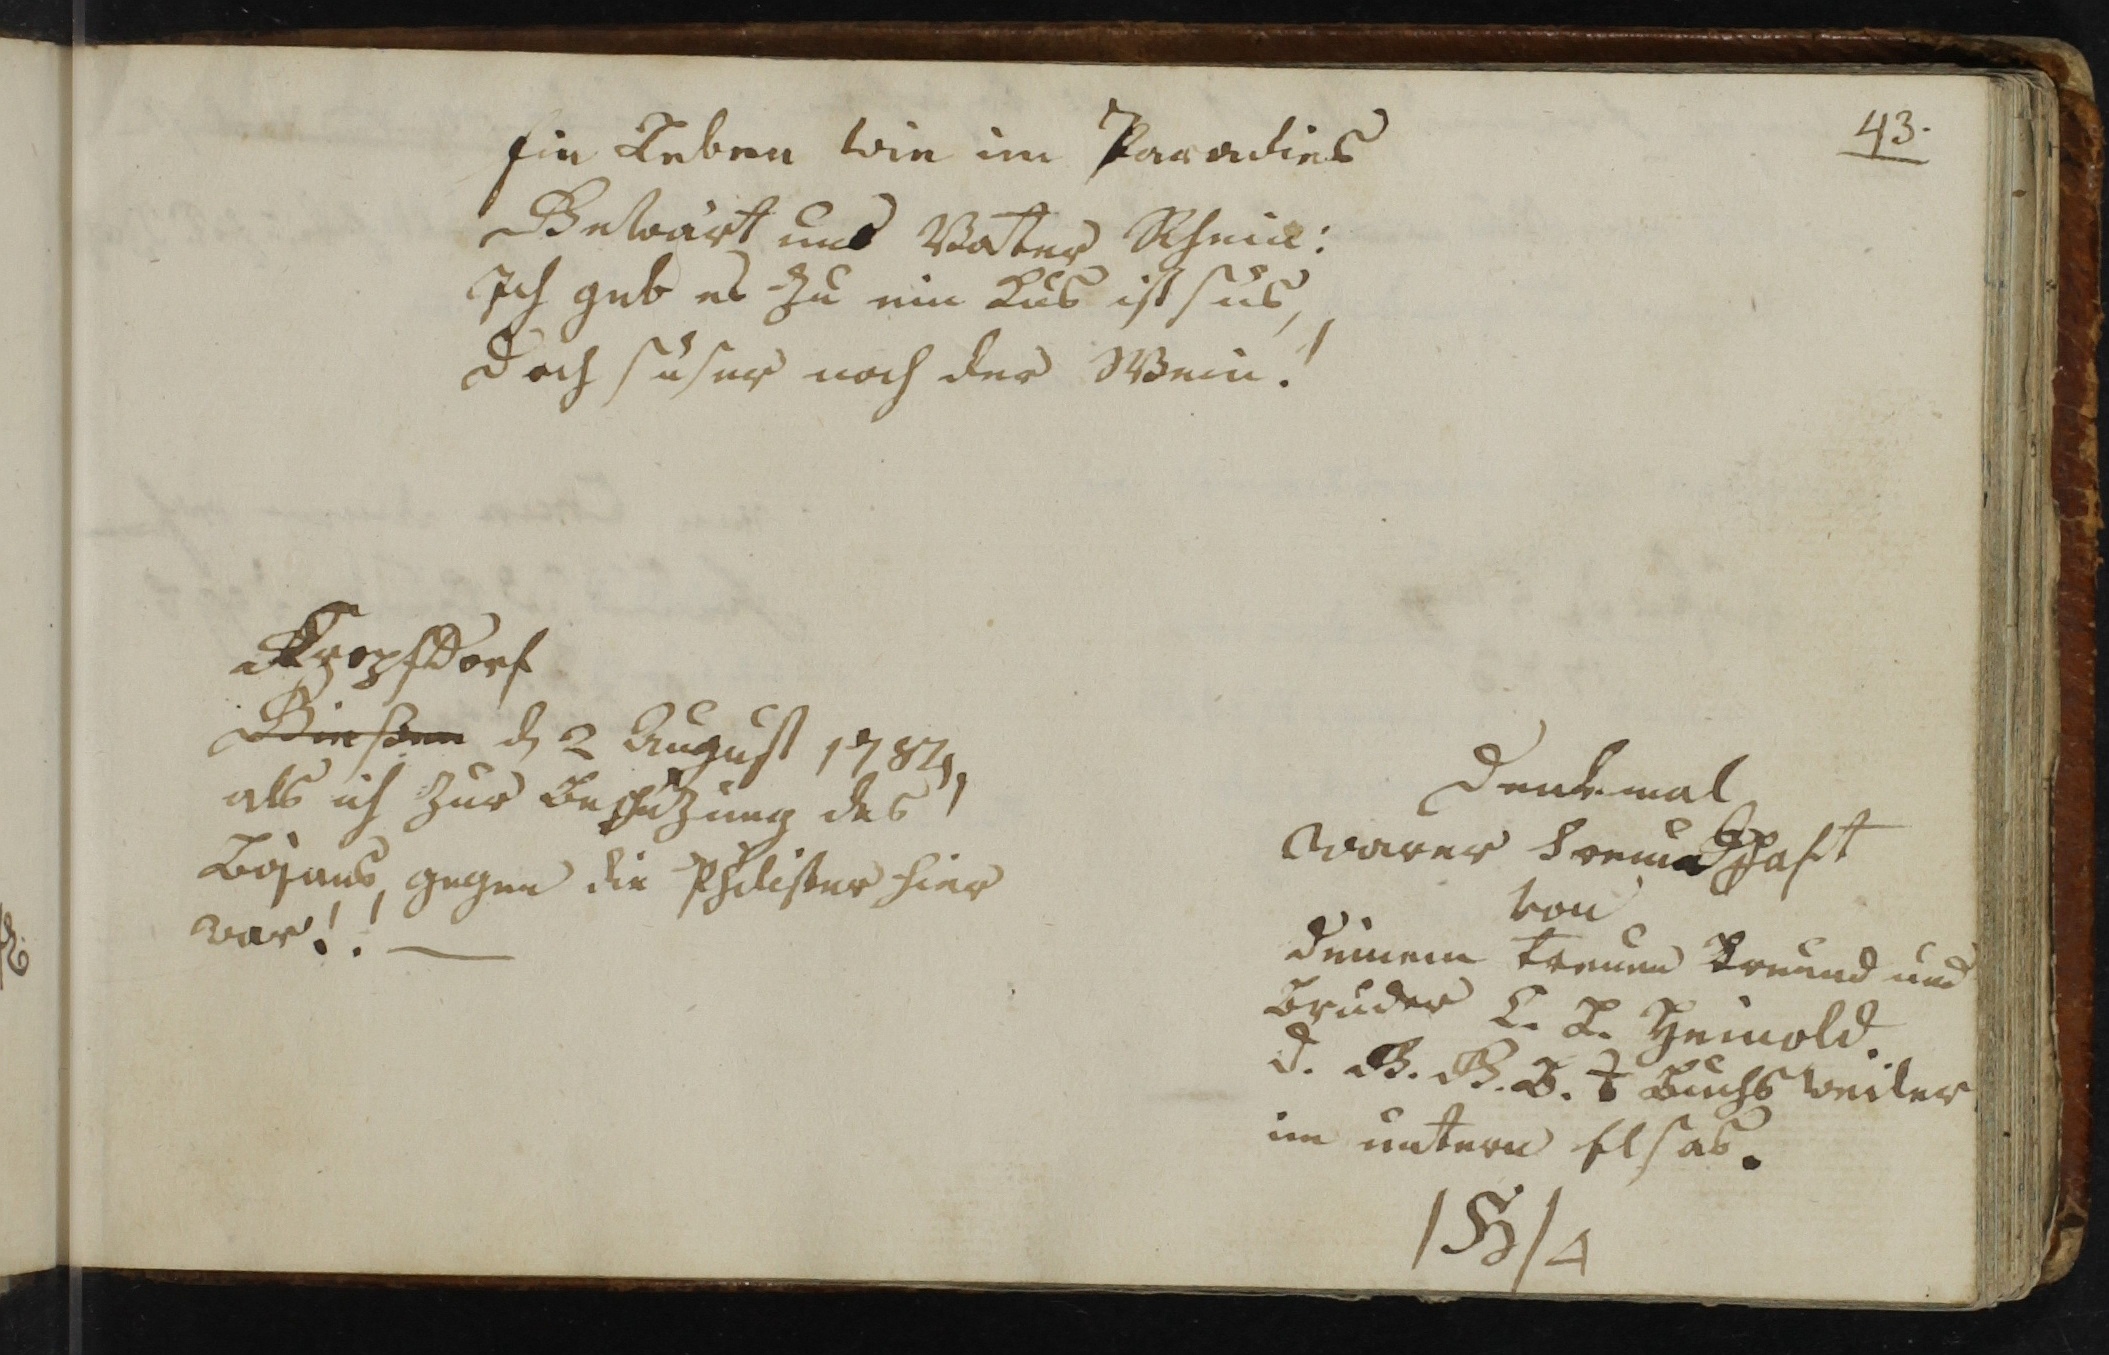 43.
Ein Leben wie im Paradies
Gewärt uns Vater Rhein:
Ich geb es zu ein Kus ist süs,
Doch süser noch der Wein!
Kropsdorf
Giessen d 2 August 1787,
als ich zur Beschüzung des
gegen die Philister hier
war!! —
Denkmal
warer Freundschaft
von
deinem treuen Freund und
Bruder C. L. Heinold.
d. G. G. B. Buchsweiler
im untern Elsas.